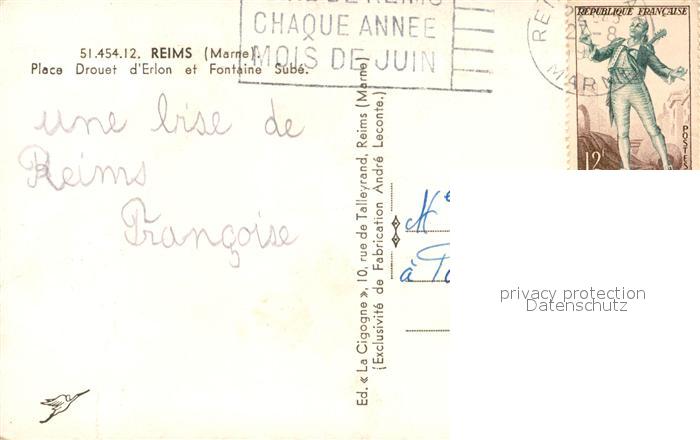 CHAQUE ANNÉE
MOIS DE JUIN
RÉPUBLIQUE FRANÇAISE
12F
POSTES
MARNE
51.454.12. REIMS (Marne).
Place Drouet d'Erlon et Fontaine Subé.
une bise de
Reims
Françoise
Ed. « La Cigogne », 10, rue de Talleyrand, Reims (Marne)
(Exclusivité de Fabrication André Leconte.)
à
privacy protection
Datenschutz